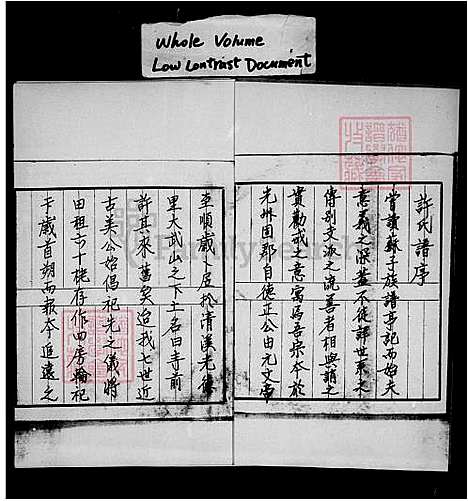 Whole Volume
Low Contrast Document
許氏譜序
嘗讀蘇子族譜亭記而始夫
意義之深蓋不徒譯世系本
傳別支派之流善者相與誚之
實勸戒之意寓焉吾宗本於
光州固郡自德正公由元文帝
至順歲卜居於清溪光德
里大武山之下土名曰寺前
許其來舊矣迨我七世近
古美公始倡祀先之儀將
田租六十栳存作四房輪祀
于歲首朔而報本追遠之
FamilySearch